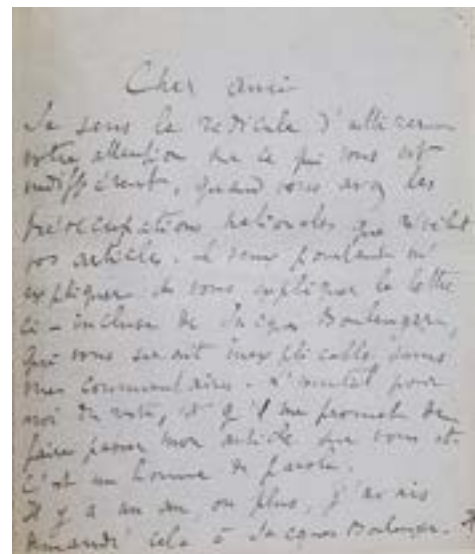 Cher ami
Je sens le ridicule d'attirer
votre attention sur ce qui vous est
indifférent, quand vous avez les
préoccupations nationales que
vos articles. Je veux pourtant m'
expliquer et vous expliquer la lettre
ci-incluse de Jacques Boulenger,
qui vous serait inexplicable sans
mes commentaires.
moi du reste, et qu'il me promet de
faire passer mon article sur vous et
c'est un homme de parole.
Il y a un an ou plus, j'avais
demandé cela à Jacques Boulenger.